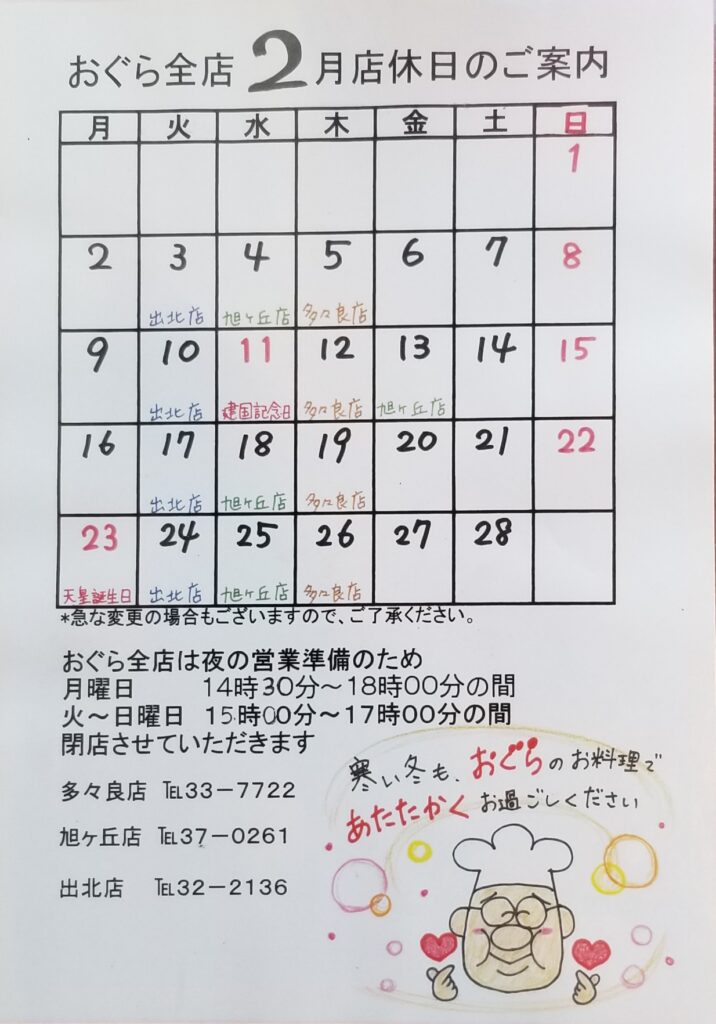 おぐら全店 2月店休日のご案内
月 火 水 木 金 土 日
1
2 3 4 5 6 7 8
出北店 旭ヶ丘店 多々良店
9 10 11 12 13 14 15
出北店 建国記念日 多々良店 旭ヶ丘店
16 17 18 19 20 21 22
出北店 旭ヶ丘店 多々良店
23 24 25 26 27 28
天皇誕生日 出北店 旭ヶ丘店 多々良店
*急な変更の場合もございますので、ご了承ください。
おぐら全店は夜の営業準備のため
月曜日 14時30分～18時00分の間
火～日曜日 15時00分～17時00分の間
閉店させていただきます
多々良店 ℡33－7722
旭ヶ丘店 ℡37－0261
出北店 ℡32－2136
寒い冬も、おぐらのお料理で
あたたかくお過ごしください